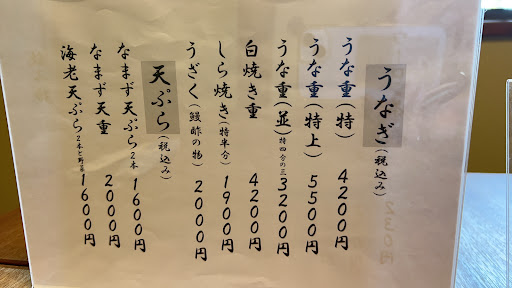 うなぎ(税込み)
うな重(特) 4200円
うな重(特上) 5500円
うな重(並)特四分の三 3200円
白焼き重 4200円
しら焼き(特半分) 1900円
うざく(鰻酢の物) 2000円
天ぷら(税込み)
なまず天ぷら2本 1600円
なまず天重 2000円
海老天ぷら2本と野菜 1600円